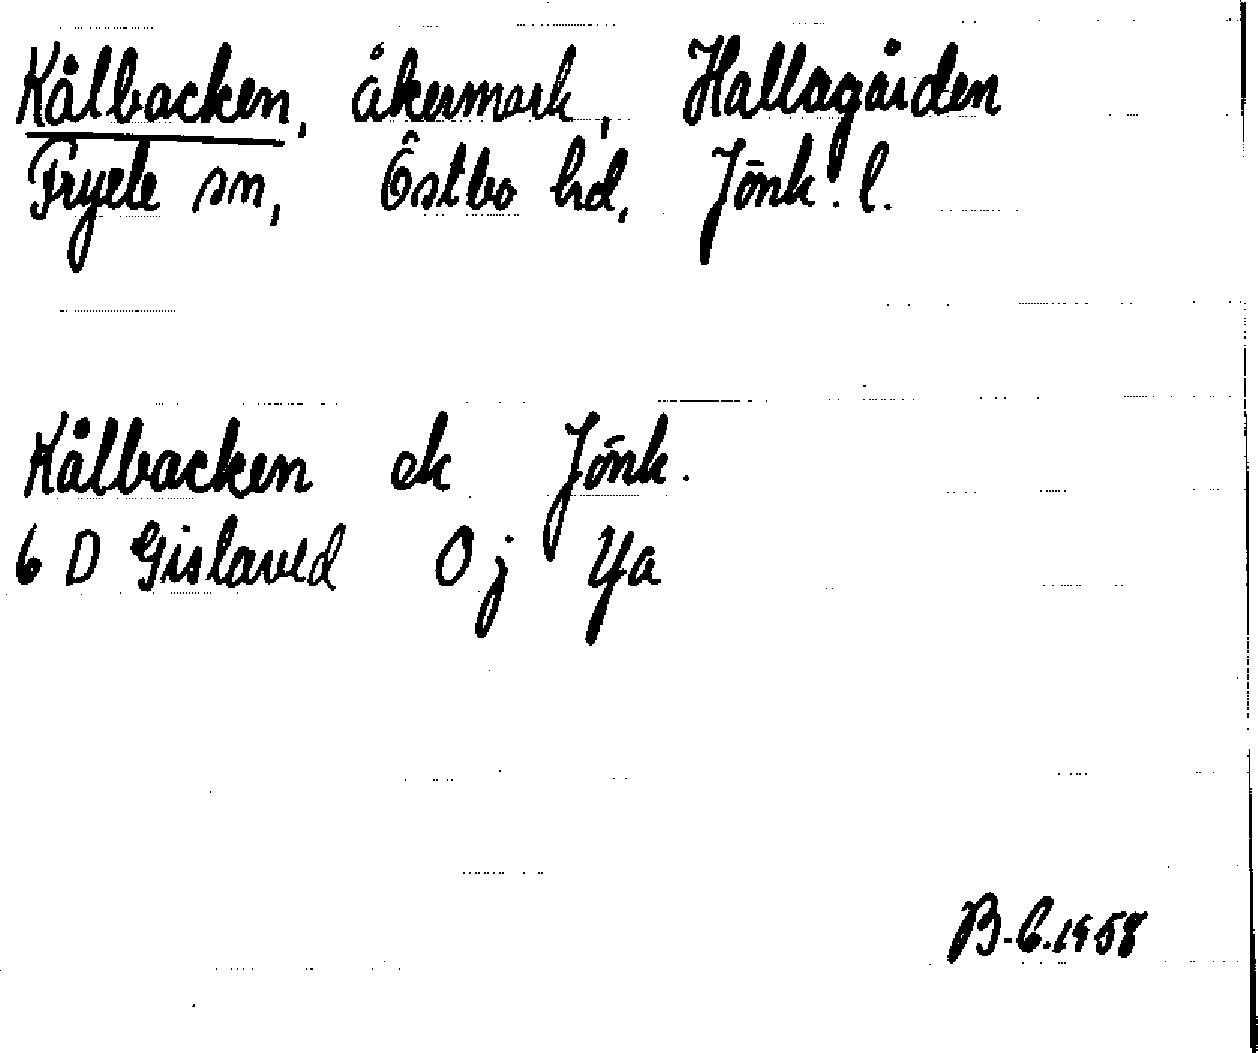 Kålbacken, åkermark, Hallagården
Fryele sn, Östbo hd, Jönk. l.
Kålbacken ek Jönk.
6 D Gislaved Oj Ya
B-G.1958